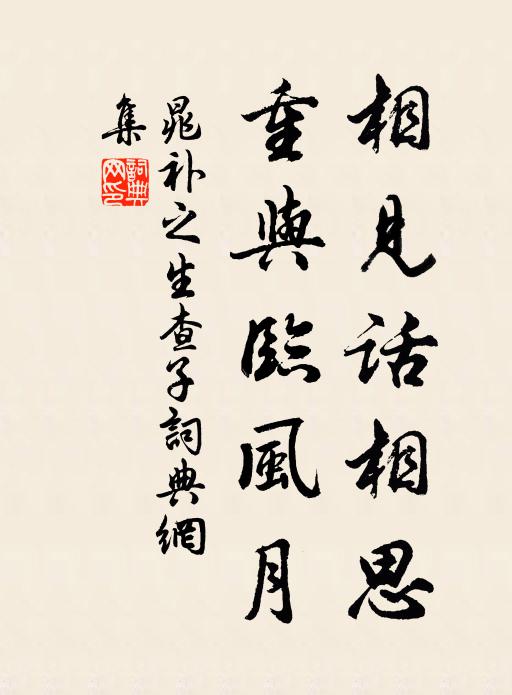 相見話相思
重與臨風月
晁补之生查子詞典網
集
詞典網印